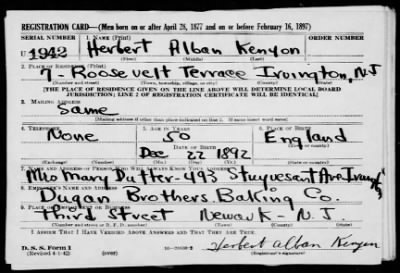 REGISTRATION CARD—(Men born on or after April 28, 1877 and on or before February 16, 1897)
SERIAL NUMBER 1. NAME (Print) ORDER NUMBER
U 1942 Herbert Alban Kenyon
(First) (Middle) (Last)
2. PLACE OF RESIDENCE (Print)
7- Roosevelt Terrace Irvington, N.J
(Number and street) (Town, township, village, or city) (County) (State)
[THE PLACE OF RESIDENCE GIVEN ON THE LINE ABOVE WILL DETERMINE LOCAL BOARD
JURISDICTION; LINE 2 OF REGISTRATION CERTIFICATE WILL BE IDENTICAL]
3. MAILING ADDRESS
Same
(Mailing address if other than place indicated on line 2. If same insert word same)
4. TELEPHONE 5. AGE IN YEARS 6. PLACE OF BIRTH
None England
DATE OF BIRTH
Dec 22 1892
(Exchange) (Number) (Mo.) (Day) (Yr.) (State or country)
7. NAME AND ADDRESS OF PERSON WHO WILL ALWAYS KNOW YOUR ADDRESS
Mary 493 Stuyvesant Ave.
8. EMPLOYER'S NAME AND ADDRESS
Dugan Brothers Baking Co.
9. PLACE OF EMPLOYMENT OR BUSINESS
Third Street Newark- N.J.
(Number and street or R. F. D. number) (Town) (County) (State)
I AFFIRM THAT I HAVE VERIFIED ABOVE ANSWERS AND THAT THEY ARE TRUE.
D. S. S. Form 1
(Revised 4-1-42) (over) Herbert Alban Kenyon
(Registrant's signature)